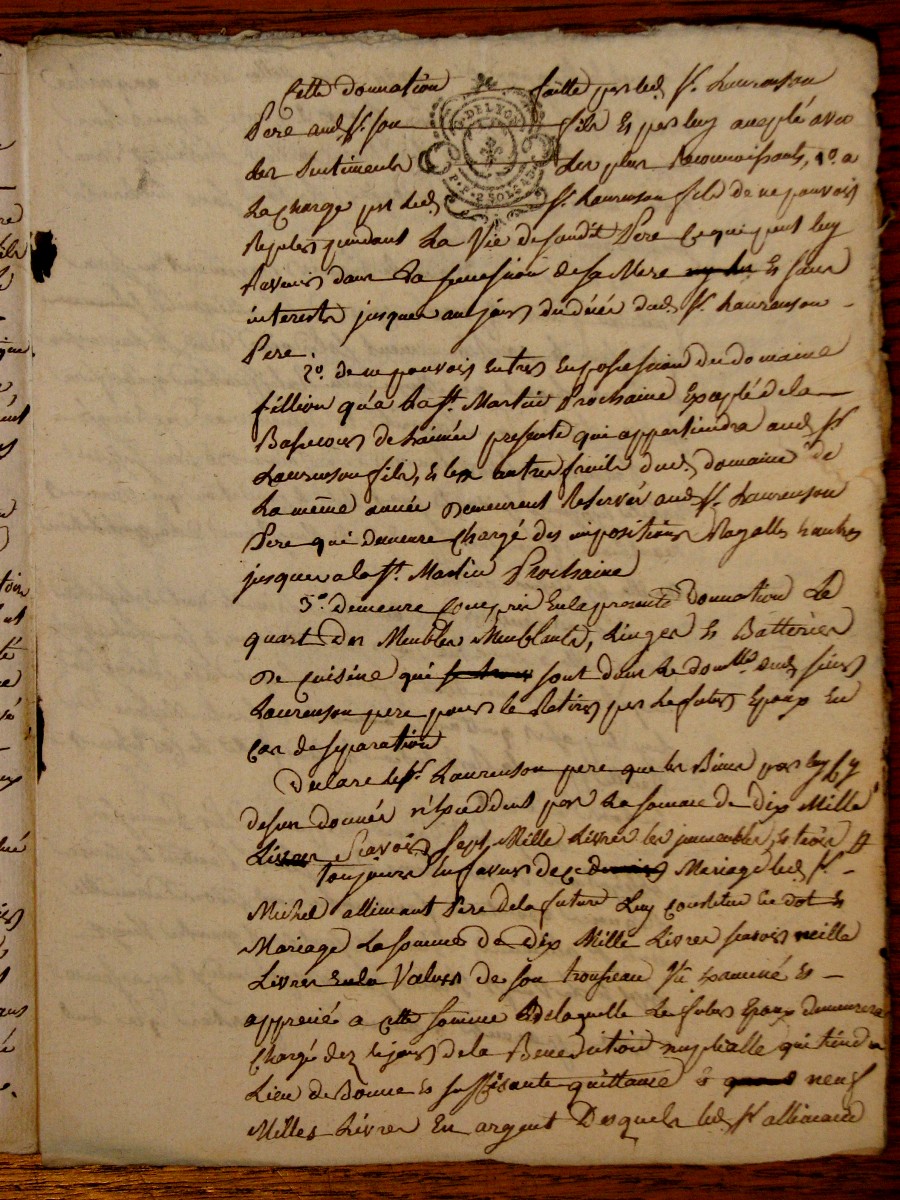 Cette donnation faitte par led. Sr. Laurenson
Pere aud. Sr. son fils Et par luy accepté avec
des sentiments des plus Reconnoissants, 1o. a
la charge par led. Sr. Laurenson fils de ne pouvoir
Repeter pendant la Vie desondit Pere ce qui peut luy
Revenir dans la succession de sa Mere Et sans
interests jusques au jour du décés dud. Sr. Laurenson
Pere.
2o. de ne pouvoir entrer en possession du domaine
fillion qu'a la St. Martin Prochaine Excepté de la
Bassecour de L'année presente qui appartiendra aud. Sr.
Laurenson fils, Et les autres fruits dud. domaine de
la même année demeurent Reservés aud. Sr. Laurenson
Pere qui demeure chargé des impositions Royalles
jusques a la St. Martin Prochaine
3o. demeure compris En la presente donnation Le
quart des Meubles Meublants, Linges Et Batteries
de cuisine qui sont dans le dud. sieur
Laurenson pere pour le Retirer par le futur Epoux En
cas de separation
Declare led. Sr. Laurenson pere que les Biens par luy cy
dessus donnés n'Exceddent pas la somme de dix Mille
Livres Scavoir Sept Mille Livres les immeubles, Et trois
toujours En faveur de ce Mariage led. Sr.
Michel allimant Pere de la future Luy constitue En dot Et
Mariage La somme de dix Mille Livres scavoir mille
Livres En la Valeur de son trousseau Examiné Et
apprecié a cette somme De laquelle Le futur Epoux demeurera
chargé dez le jour de la Benediction nuptialle qui tiendra
Lieu de Bonne Et suffisante quittance Et neuf
Milles Livres En argent Desquels led. Sr. allimand
P. DE LYON